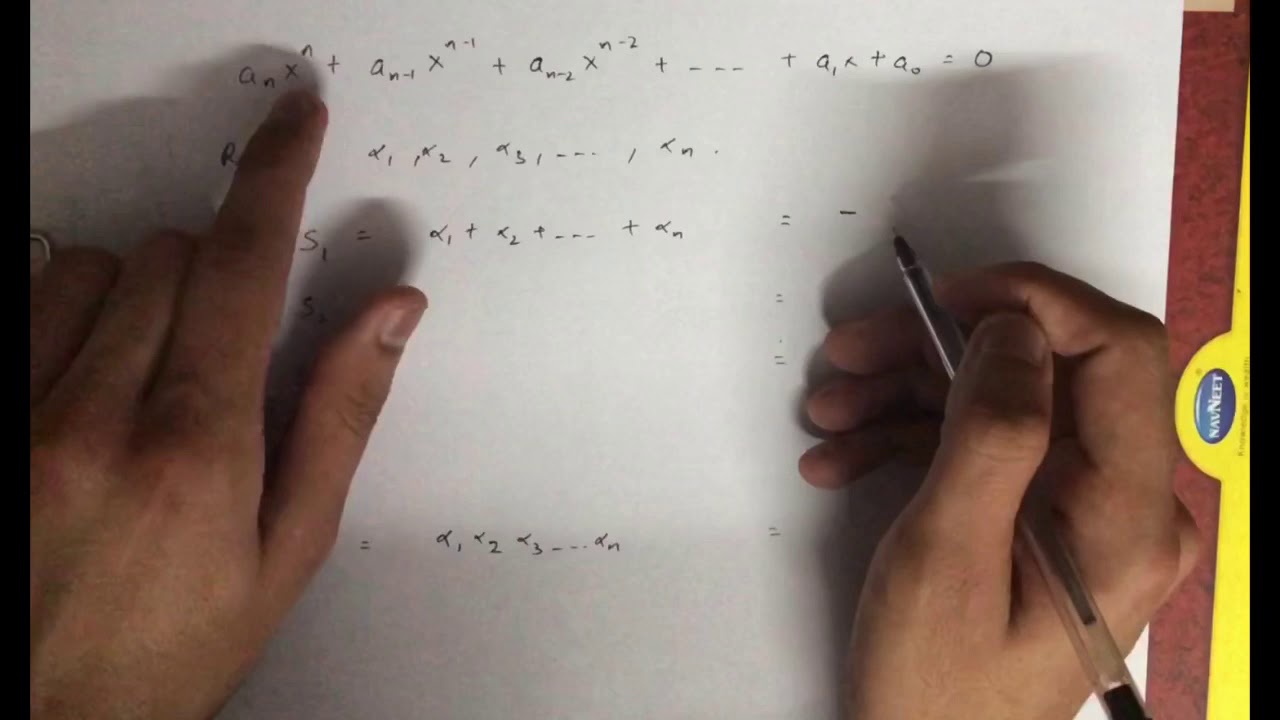 aₙxⁿ + aₙ₋₁xⁿ⁻¹ + aₙ₋₂xⁿ⁻² + --- + a₁x + a₀ = 0
R α₁, α₂, α₃, ---, αₙ.
S₁ = α₁ + α₂ + --- + αₙ = -
S₂ =
=
= α₁ α₂ α₃ --- αₙ =
NAVNEET